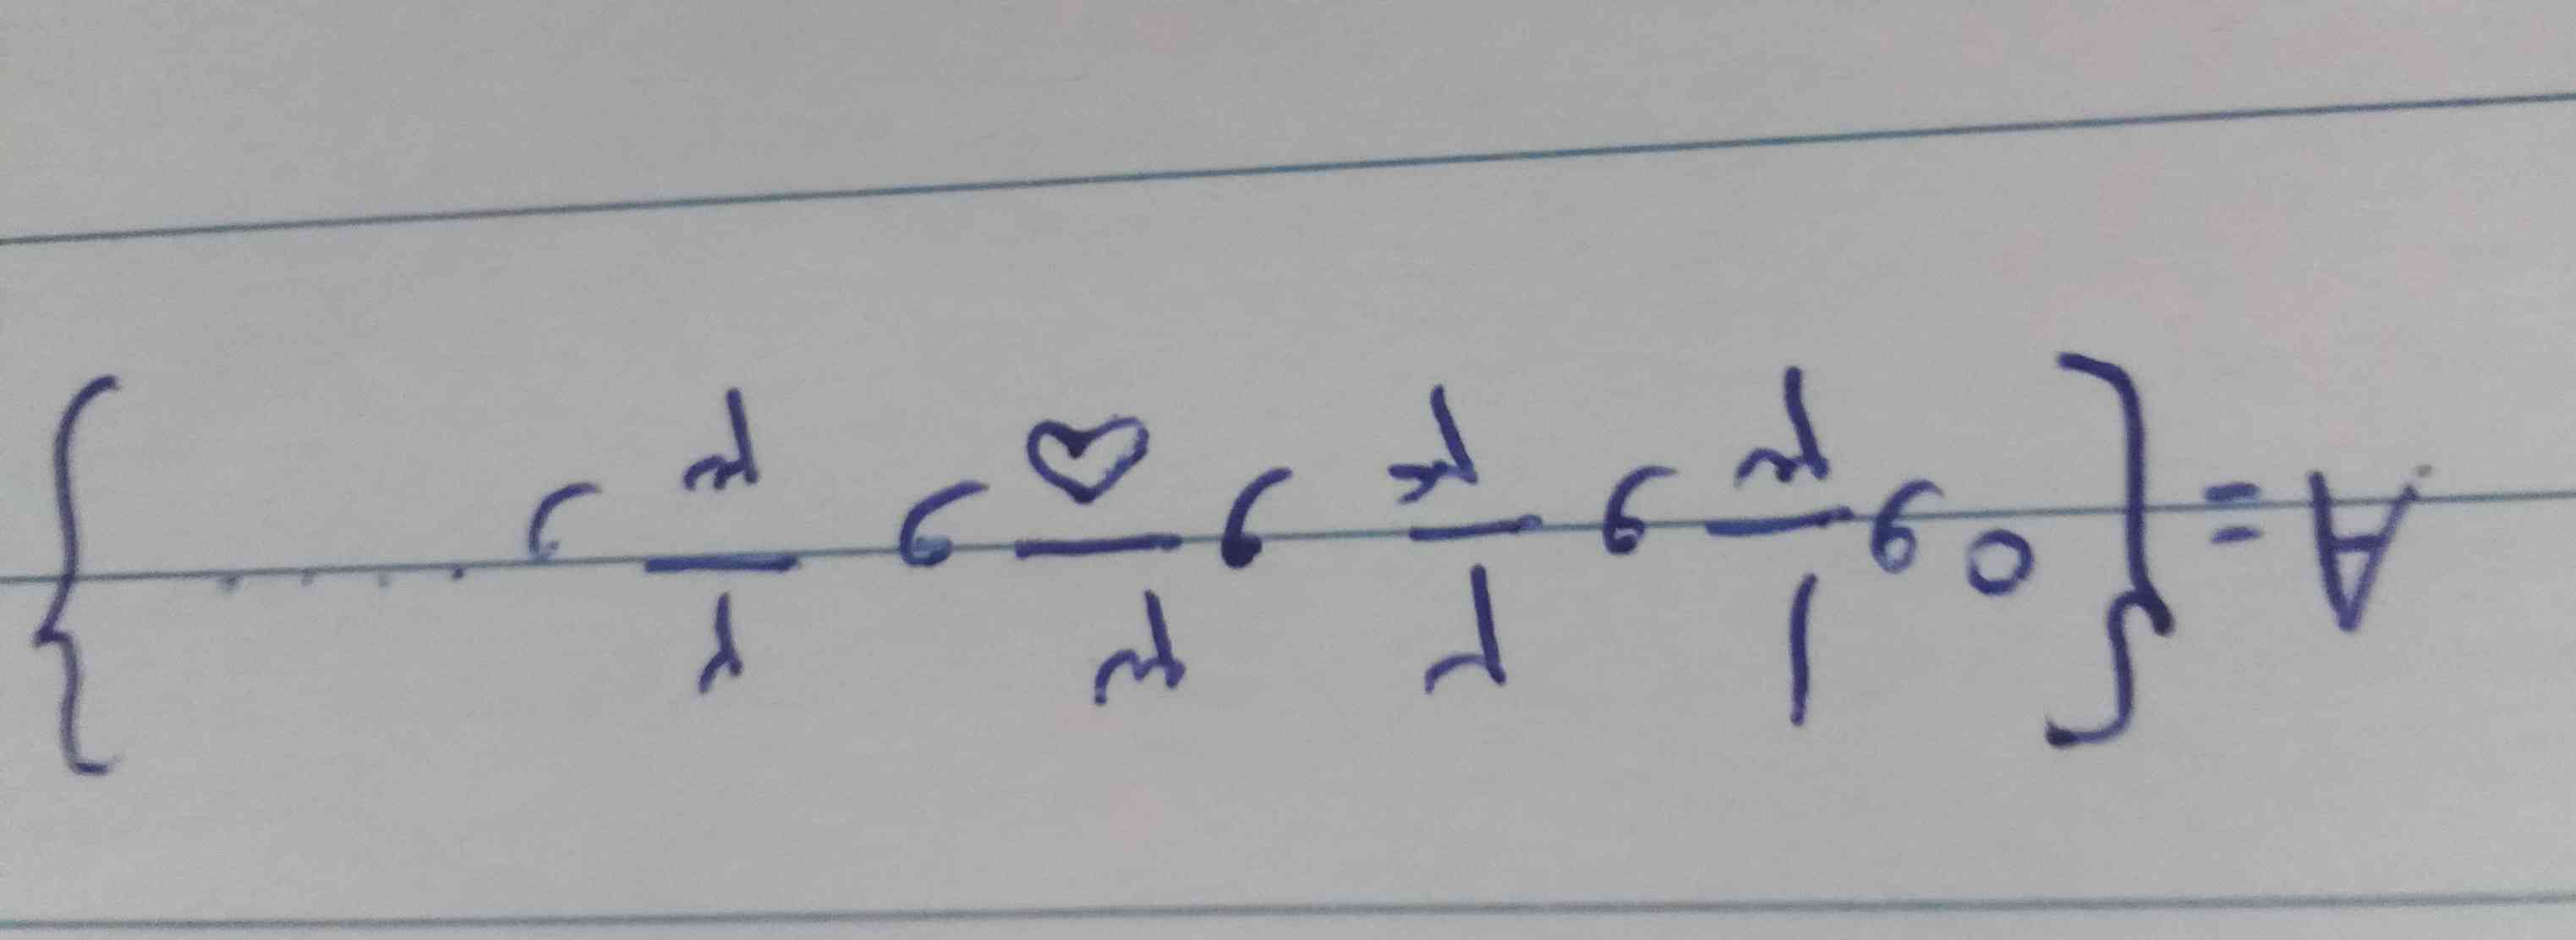 A = { 0 , ۱/۳ , ۲/۴ , ۳/۵ , ۴/۶ , .... }